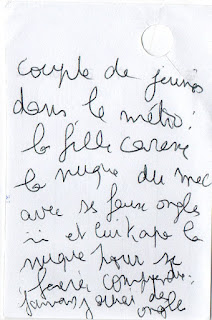 couple de jeunes
dans le métro :
la fille caresse
la nuque du mec
avec ses faux ongles
et lui tape la
nuque pour se
faire comprendre.
jamais de
ongle